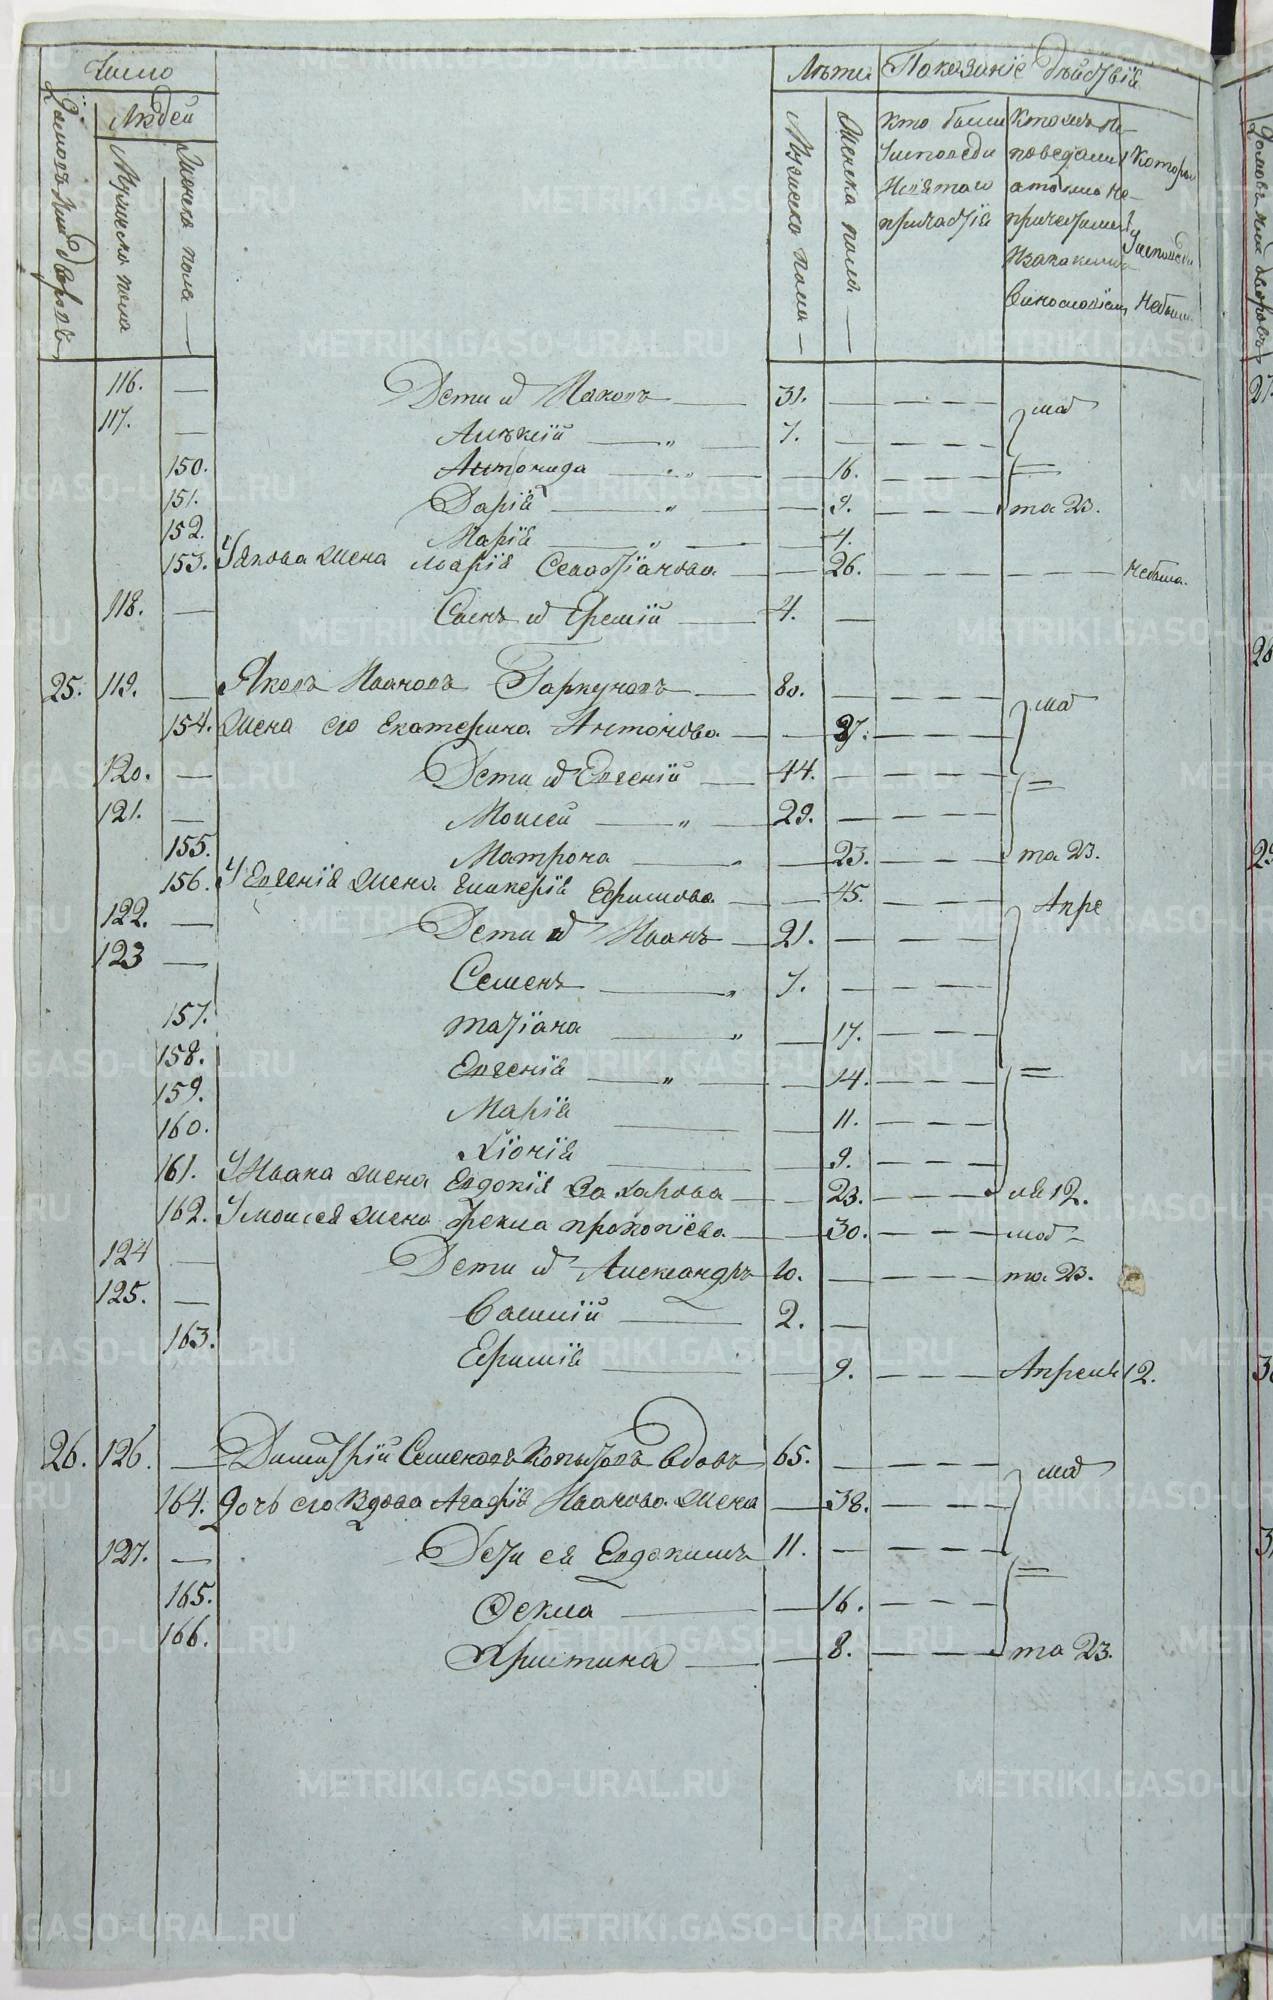 Число
Людей
Домовъ или дворовъ
Мужеска пола
Женска пола
Лѣта
Мужеска пола
Женска пола
Показаніе дѣйствія
Кто были у исповеди и святаго причастія
Кто исповедались а токмо не причастились и за какимъ винословіемъ
Которые у исповеди не были
116. — Дети их Иаковъ — 31. — май
117. — Алѣксій — 7. —
150. Антонида — 16.
151. Дарія — 9. — та 23.
152. Марія — 4.
153. У Якова жена Марія Севастіанова — 26. — небыла.
118. — Сынъ их Еремій — 4. —
25. 119. — Яковъ Ивановъ Горкуновъ — 80. — май
154. Жена его Екатерина Антонова — 37.
120. — Дети их Евгеній — 44. —
121. — Моисей — 29. —
155. Матрона — 23. — та 23.
156. У Евгенія жена Гликерія Ефимова — 45. — Апре
122. — Дети их Иванъ — 21. —
123 — Семенъ — 7. —
157. Татіана — 17.
158. Евгенія — 14.
159. Марія — 11.
160. Хіонія — 9.
161. У Ивана жена Евдокія Захарова — 23. — ля 12.
162. У Моисея жена Фекла Прокопіева — 30. — май
124 — Дети их Александръ 10. — та 23.
125. — Василій — 2. —
163. Ефимія — 9. — Апреля 12.
26. 126. — Димитрій Семеновъ Копытовъ вдовъ 65. — май
164. Дочь его вдова Агафія Иванова жена — 38.
127. — Дети ея Евдокимъ 11. —
165. Фекла — 16.
166. Христина — 8. — та 23.
METRIKI.GASO-URAL.RU